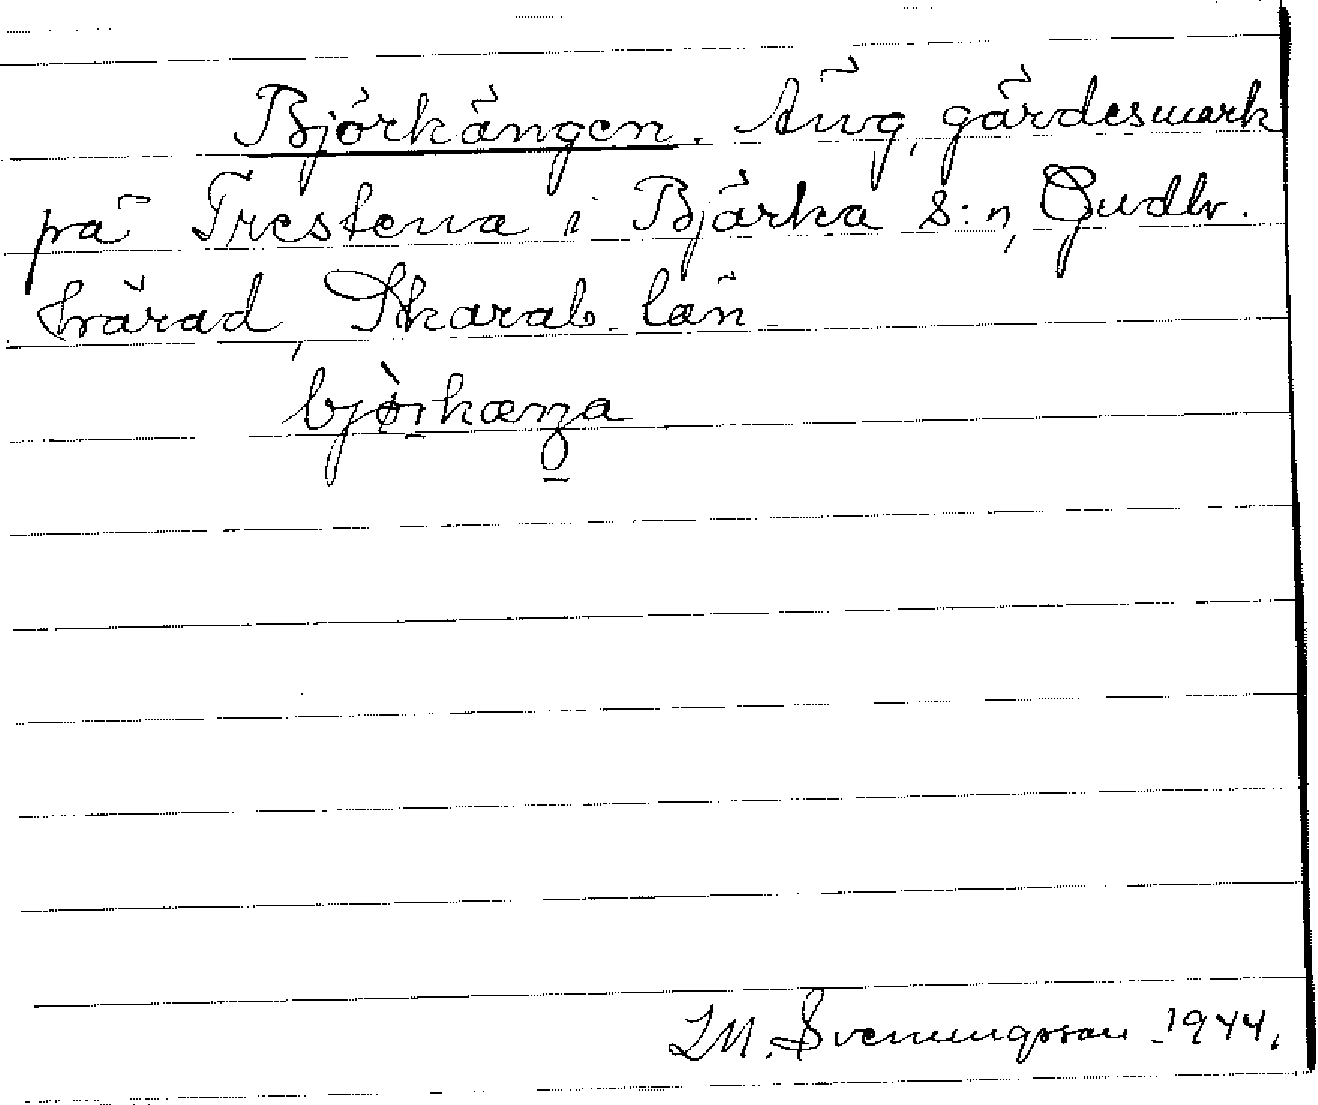 Björkängen. Äng, gärdesmark
på Trestena i Bjärka s:n, Gudh.
härad, Skarab. län
bjö̀rkæŋa
M. Svenningsson 1944.